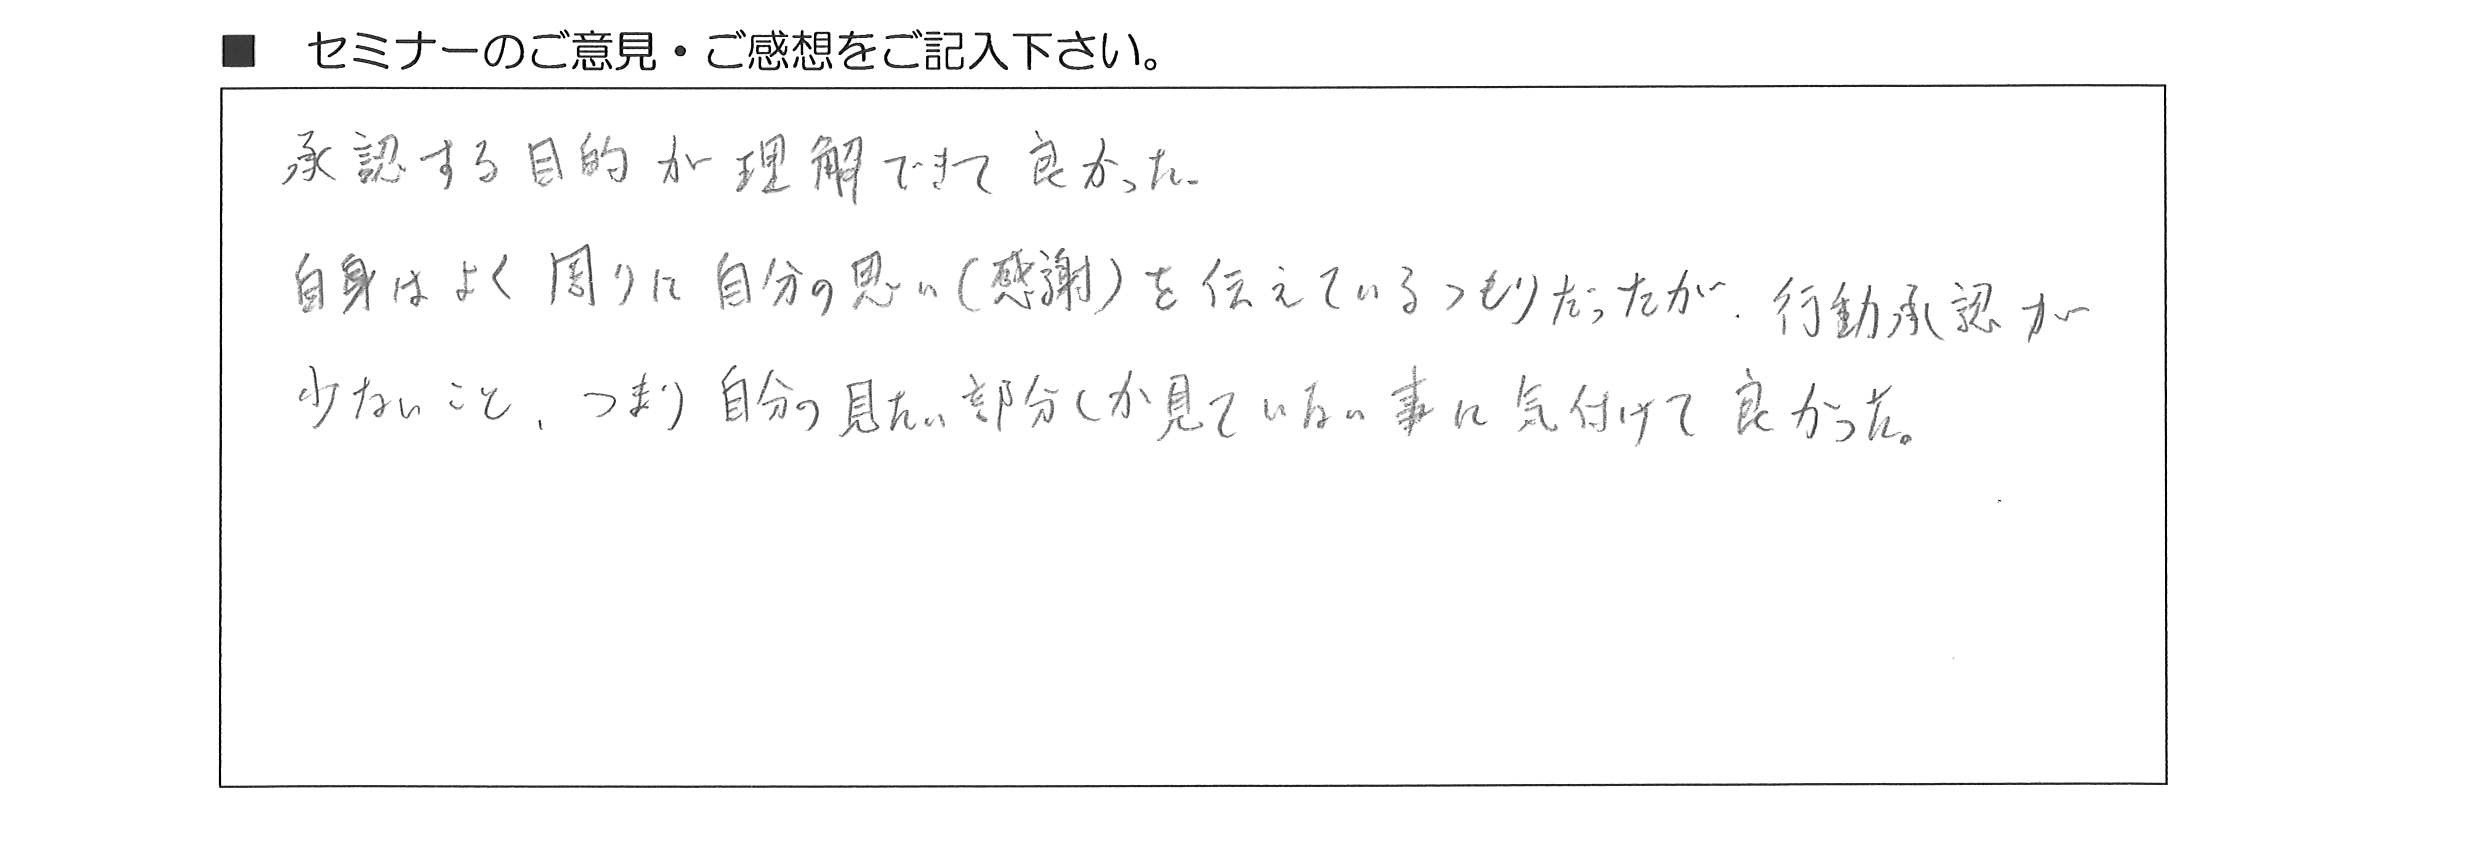 ■ セミナーのご意見・ご感想をご記入下さい。
承認する目的が理解できて良かった。
自身はよく周りに自分の思い(感謝)を伝えているつもりだったが、行動承認が
少ないこと、つまり自分の見たい部分しか見ていない事に気付けて良かった。